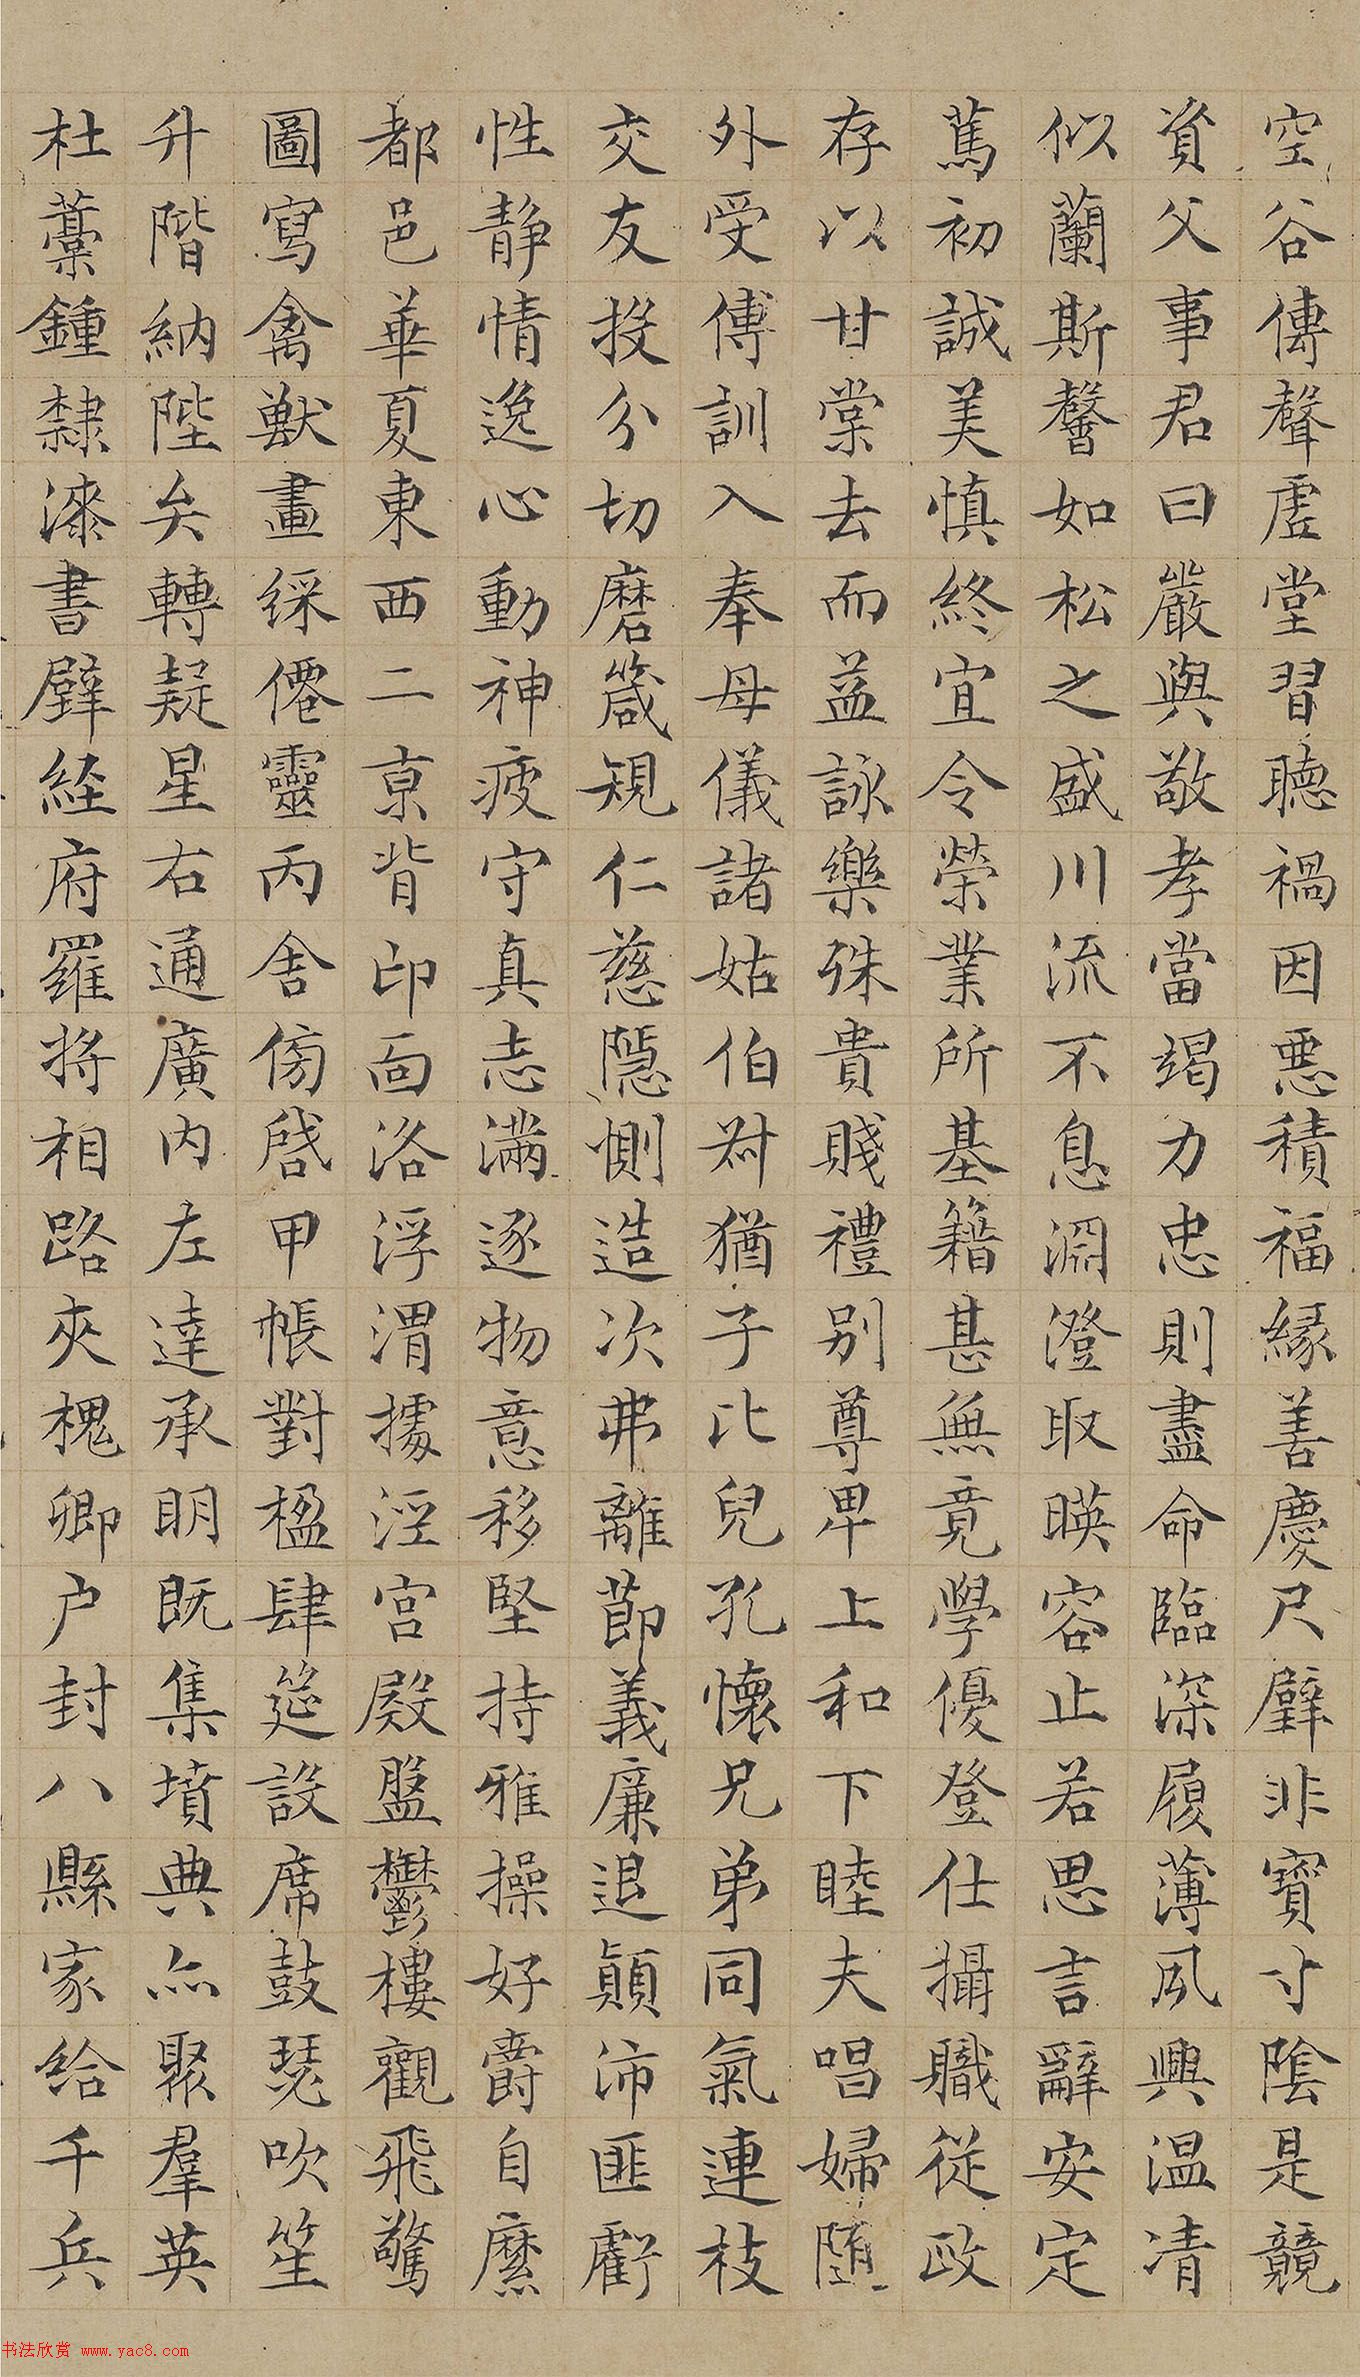 空谷傳聲虛堂習聽禍因惡積福緣善慶尺璧非寶寸陰是競
資父事君曰嚴與敬孝當竭力忠則盡命臨深履薄夙興温凊
似蘭斯馨如松之盛川流不息淵澄取暎容止若思言辭安定
篤初誠美慎終宜令榮業所基籍甚無竟學優登仕攝職從政
存以甘棠去而益詠樂殊貴賤禮别尊卑上和下睦夫唱婦随
外受傅訓入奉母儀諸姑伯叔猶子比兒孔懷兄弟同氣連枝
交友投分切磨箴規仁慈隱惻造次弗離節義廉退顛沛匪虧
性静情逸心動神疲守真志滿逐物意移堅持雅操好爵自縻
都邑華夏東西二京背邙面洛浮渭據涇宮殿盤鬱樓觀飛驚
圖寫禽獸畫綵僊靈丙舍傍啓甲帳對楹肆筵設席鼓瑟吹笙
升階納陛弁轉疑星右通廣内左達承明既集墳典亦聚羣英
杜藁鍾隸漆書壁経府羅将相路夾槐卿户封八縣家給千兵
书法欣赏 www.yac8.com